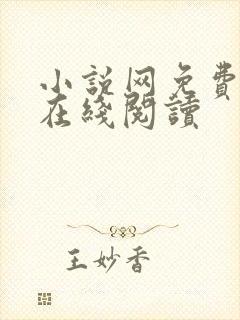 小説网免費
在綫閱讀
王妙香